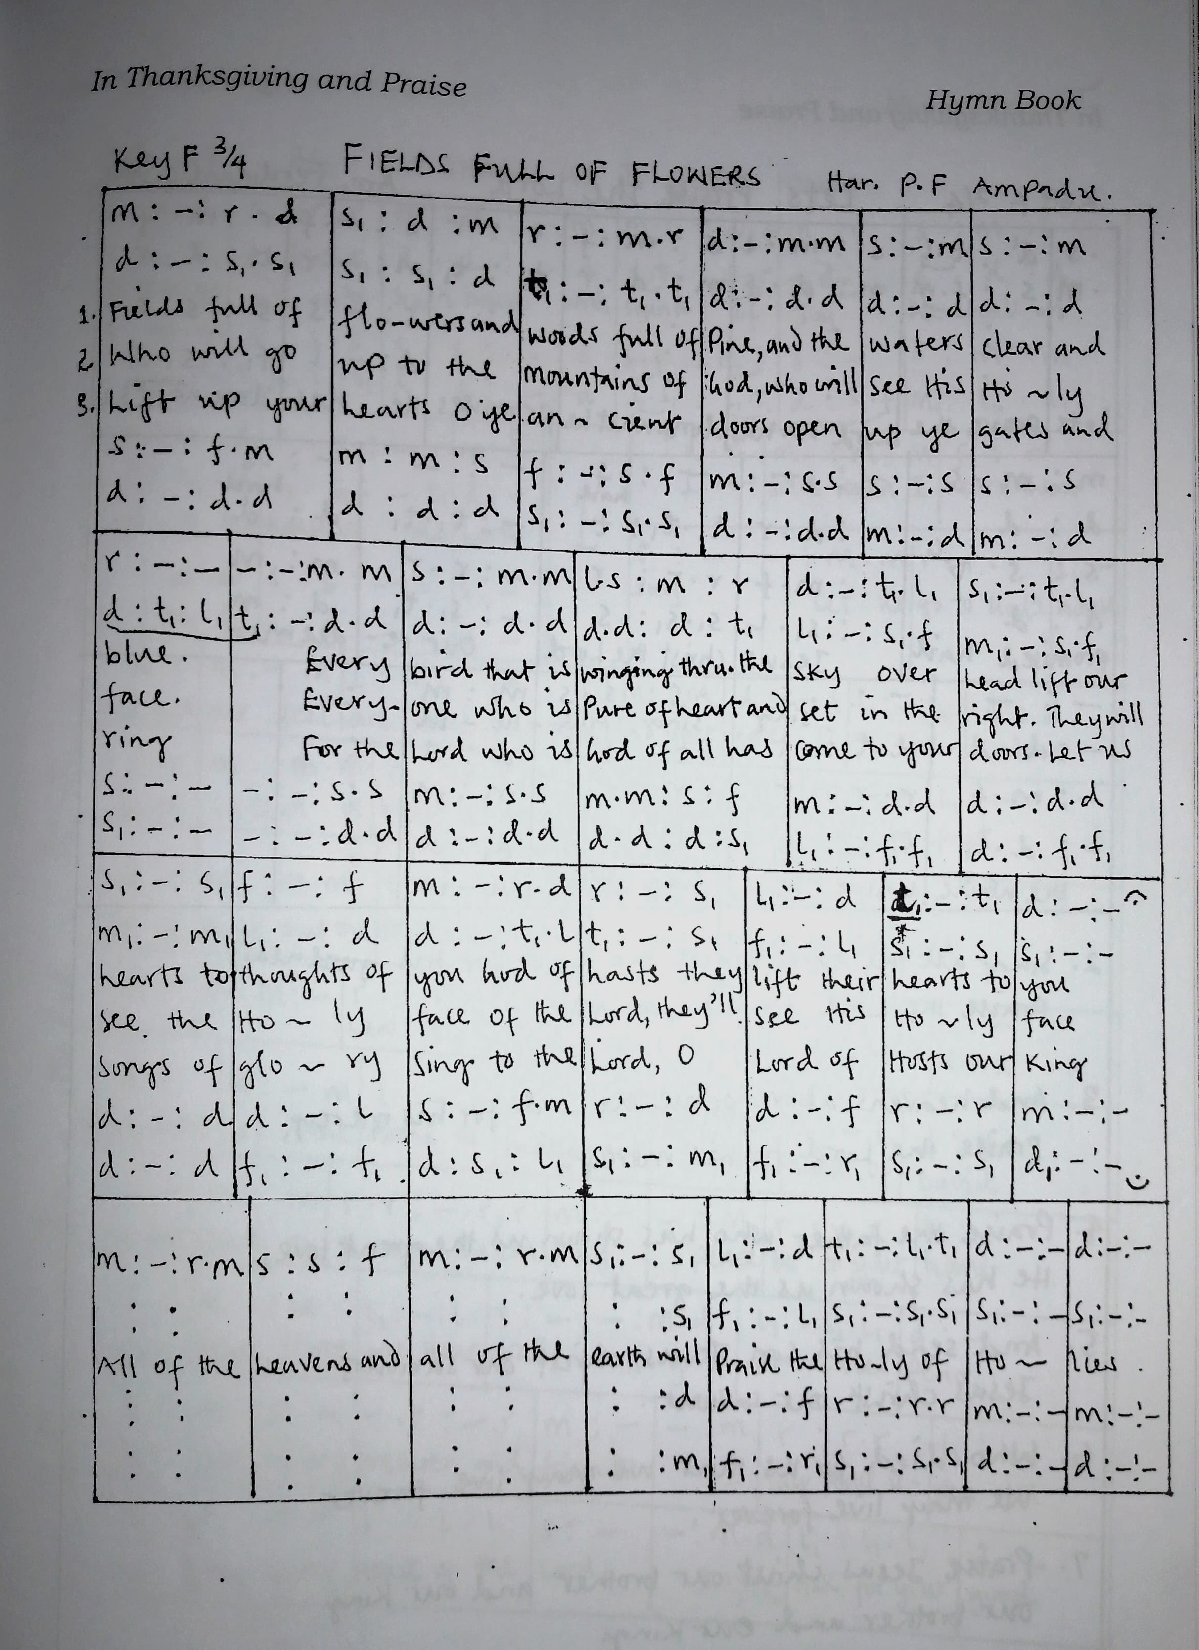 In Thanksgiving and Praise
Hymn Book
Key F 3/4 FIELDS FULL OF FLOWERS Har. P.F Ampadu.
m : – : r . d | s₁ : d : m | r : – : m.r | d : – : m.m | s : – : m | s : – : m
d : – : s₁ . s₁ | s₁ : s₁ : d | t₁ : – : t₁ . t₁ | d : – : d.d | d : – : d | d : – : d
1. Fields full of | flo-wers and | woods full of | Pine, and the | waters | clear and
2 Who will go | up to the | mountains of | God, who will | see His | Ho ~ ly
3. Lift up your | hearts O ye | an ~ cient | doors open | up ye | gates and
s : – : f . m | m : m : s | f : – : s . f | m : – : s.s | s : – : s | s : – : s
d : – : d . d | d : d : d | s₁ : – : s₁ . s₁ | d : – : d.d | m : – : d | m : – : d
r : – : – | – : – : m . m | s : – : m.m | l.s : m : r | d : – : t₁ . l₁ | s₁ : – : t₁ . l₁
d : t₁ : l₁ | t₁ : – : d.d | d : – : d.d | d.d : d : t₁ | l₁ : – : s₁ . f | m₁ : – : s₁ . f₁
blue. | Every | bird that is | winging thru. the | sky over | head lift our
face. | Every- | one who is | Pure of heart and | set in the | right. They will
ring | For the | Lord who is | God of all has | come to your | doors. Let us
s : – : – | – : – : s.s | m : – : s.s | m.m : s : f | m : – : d.d | d : – : d.d
s₁ : – : – | – : – : d.d | d : – : d.d | d.d : d : s₁ | l₁ : – : f₁ . f₁ | d : – : f₁ . f₁
s₁ : – : s₁ | f : – : f | m : – : r.d | r : – : s₁ | l₁ : – : d | t₁ : – : t₁ | d : – : –
m₁ : – : m₁ | l₁ : – : d | d : – : t₁ . l | t₁ : – : s₁ | f₁ : – : l₁ | s₁ : – : s₁ | s₁ : – : –
hearts to | thoughts of | you God of | hosts they | lift their | hearts to | you
see the | Ho ~ ly | face of the | Lord, they'll | see His | Ho ~ ly | face
songs of | glo ~ ry | Sing to the | Lord, O | Lord of | Hosts our | King
d : – : d | d : – : l | s : – : f.m | r : – : d | d : – : f | r : – : r | m : – : –
d : – : d | f₁ : – : f₁ | d : s₁ : l₁ | s₁ : – : m₁ | f₁ : – : r₁ | s₁ : – : s₁ | d₁ : – : –
m : – : r.m | s : s : f | m : – : r.m | s₁ : – : s₁ | l₁ : – : d | t₁ : – : l₁ . t₁ | d : – : – | d : – : –
: : | : : | : : | : : s₁ | f₁ : – : l₁ | s₁ : – : s₁ . s₁ | s₁ : – : – | s₁ : – : –
All of the | heavens and | all of the | earth will | Praise the | Ho-ly of | Ho ~ | lies.
: : | : : | : : | : : d | d : – : f | r : – : r.r | m : – : – | m : – : –
: : | : : | : : | : : m₁ | f₁ : – : r₁ | s₁ : – : s₁ . s₁ | d : – : – | d : – : –